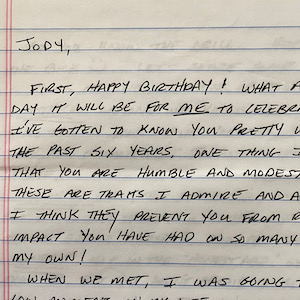 JODY,
FIRST, HAPPY BIRTHDAY! WHAT A
DAY IT WILL BE FOR ME TO CELEBR
I'VE GOTTEN TO KNOW YOU PRETTY
THE PAST SIX YEARS, ONE THING I
THAT YOU ARE HUMBLE AND MODEST
THESE ARE TRAITS I ADMIRE AND A
I THINK THEY PREVENT YOU FROM
IMPACT YOU HAVE HAD ON SO MANY
MY OWN!
WHEN WE MET, I WAS GOING